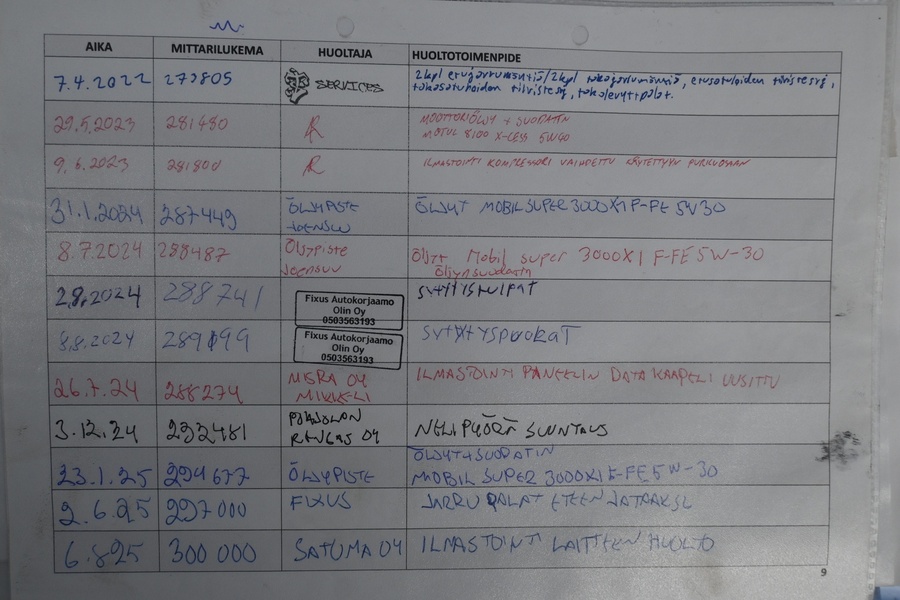 AIKA MITTARILUKEMA HUOLTAJA HUOLTOTOIMENPIDE
7.4.2022 273805 SERVICES 2kpl etujarrumäntiä/2kpl takajarrumäntiä, etusatuloiden tiivistesrj,
takasatuloiden tiivistesrj, takalevyt+palat.
29.5.2023 281480 R MOOTTORIÖLJY + SUODATIN
MOTUL 8100 X-CESS 5W40
9.6.2023 281800 R ILMASTOINTI KOMPRESSORI VAIHDETTU KÄYTETTYYN PURKUOSAAN
31.1.2024 287449 ÖLJYPISTE ÖLJYT MOBIL SUPER 3000X1 F-FE 5W30
JOENSUU
8.7.2024 288487 Öljypiste Öljyt Mobil super 3000X1 F-FE 5W-30
Joensuu Öljynsuodatin
2.8.2024 288741 SYTYTYSTULPAT
Fixus Autokorjaamo
Olin Oy
0503563193
8.8.2024 289199 SYTYTYSPUOLAT
Fixus Autokorjaamo
Olin Oy
0503563193
26.7.24 288274 MISRA OY ILMASTOINTI PANEELIN DATAKAAPELI UUSITTU
MIKKELI
3.12.24 292481 POHJOLAN NELIPYÖRÄ SUUNTAUS
RENGAS OY
ÖLJYT+SUODATIN
23.1.25 294677 ÖLJYPISTE MOBIL SUPER 3000X1 F-FE 5W-30
2.6.25 297000 FIXUS JARRU PALAT ETEEN JA TAAKSE
6.8.25 300 000 SATUMA OY ILMASTOINTI LAITTEEN HUOLTO
9